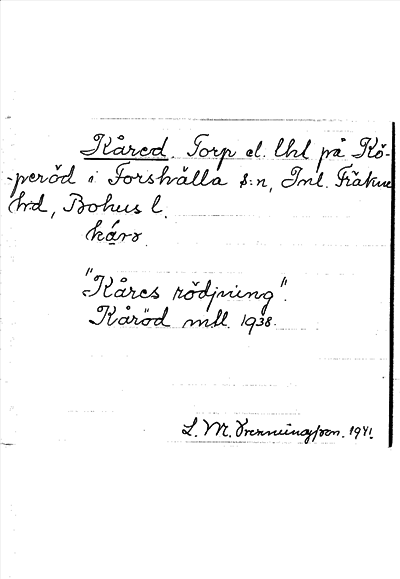 Kåred. Torp el. lht på Kö-
-peröd i Forshälla s:n, Inl. Fräkne
hrd, Bohus l.
kårö.
"Kåres rödjning".
Kåröd mtl. 1938.
L. M. Svenningsson. 1941.